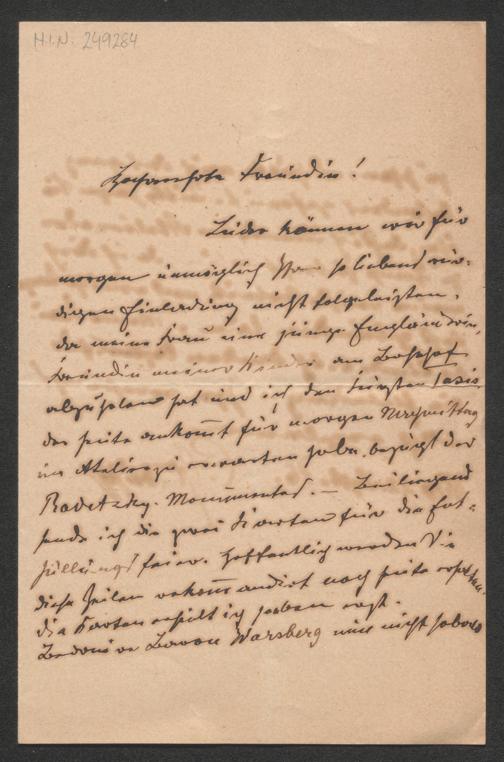 H.I.N. 249284
Hochverehrte Freundin!
Leider können wir für
morgen unmöglich Ihrer so liebenswür-
digen Einladung nicht folgeleisten,
da meine Frau eine junge Engländerin,
Freundin meiner Kinder am Bahnhof
abzuholen hat und ich den Fürsten
der heute ankomt für morgen Nachmittag
im Atelier zu erwarten habe, bezügl der
Radetzky-Monumentes. – Beiliegend
sende ich die zwei Karten für die Ent-
hüllungsfeier. Hoffentlich werden Sie
diese Zeilen rekommandirt noch heute erhalten.
die Karten erhielt ich soeben erst.
Bedaure Baron Warsberg nun nicht sobald